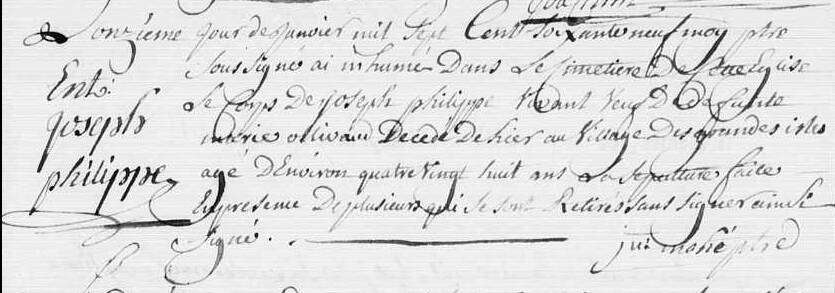 Le onzieme jour de janvier mil sept cent soixante neuf moy ptre
soussigné ai inhumé dans le cimetiere de cette Eglise
Ent:
joseph
philippe
le corps de joseph philippe vivant veuf de defunte
marie olivaud decedé de hier au village des grandes isles
agé d'Environ quatre vingt huit ans La sepulture faite
En presence de plusieurs qui se sont Retirés sans signer ainsi
signé.
ptre